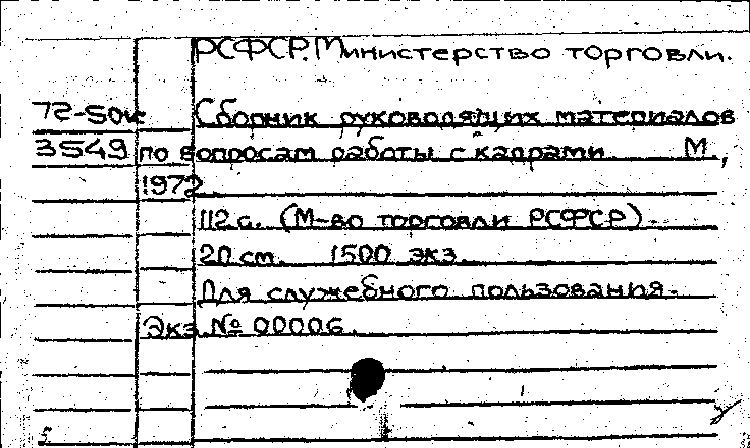 РСФСР. Министерство торговли.
72-50к Сборник руководящих материалов
3549 по вопросам работы с кадрами М.,
1972.
112 с. (М-во торговли РСФСР).
20 см. 1500 экз.
Для служебного пользования.
Экз. № 00006.
5